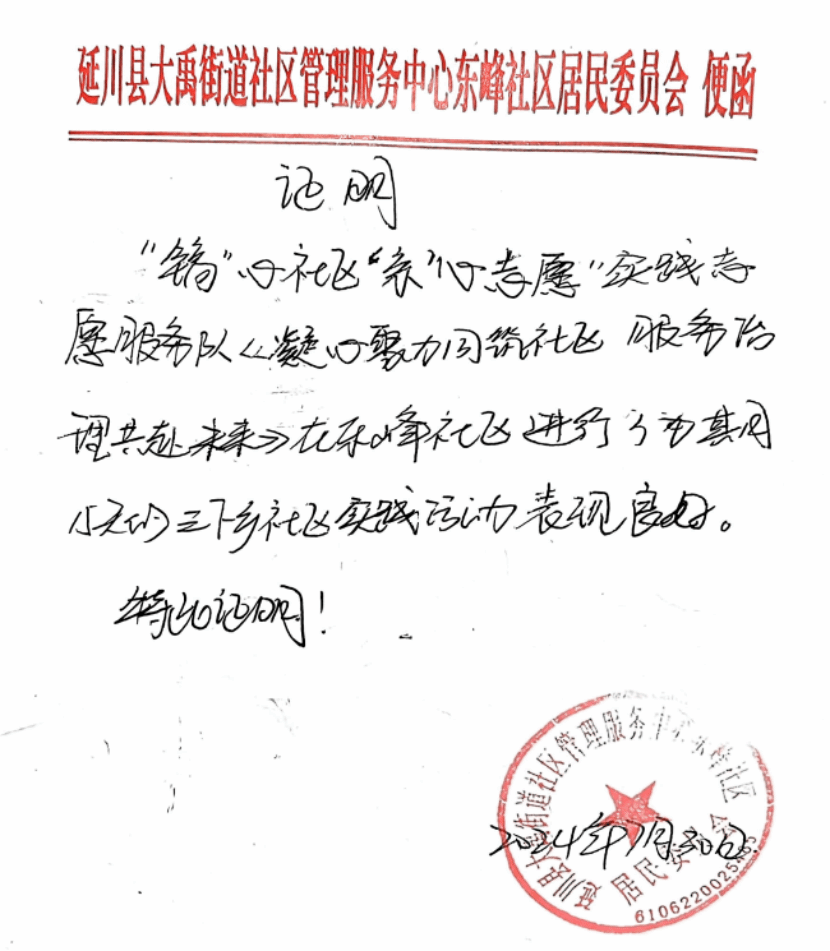 延川县大禹街道社区管理服务中心东峰社区居民委员会 便函
证明
"筑"心社区"亲"心志愿"实践志
愿服务队《凝心聚力同筑社区 服务治
理共赴未来》在东峰社区进行了为其同
15天的三下乡社区实践活动表现良好。
特此证明!
延川县大禹街道社区管理服务中心东峰社区
2024年7月30日
居民委员会